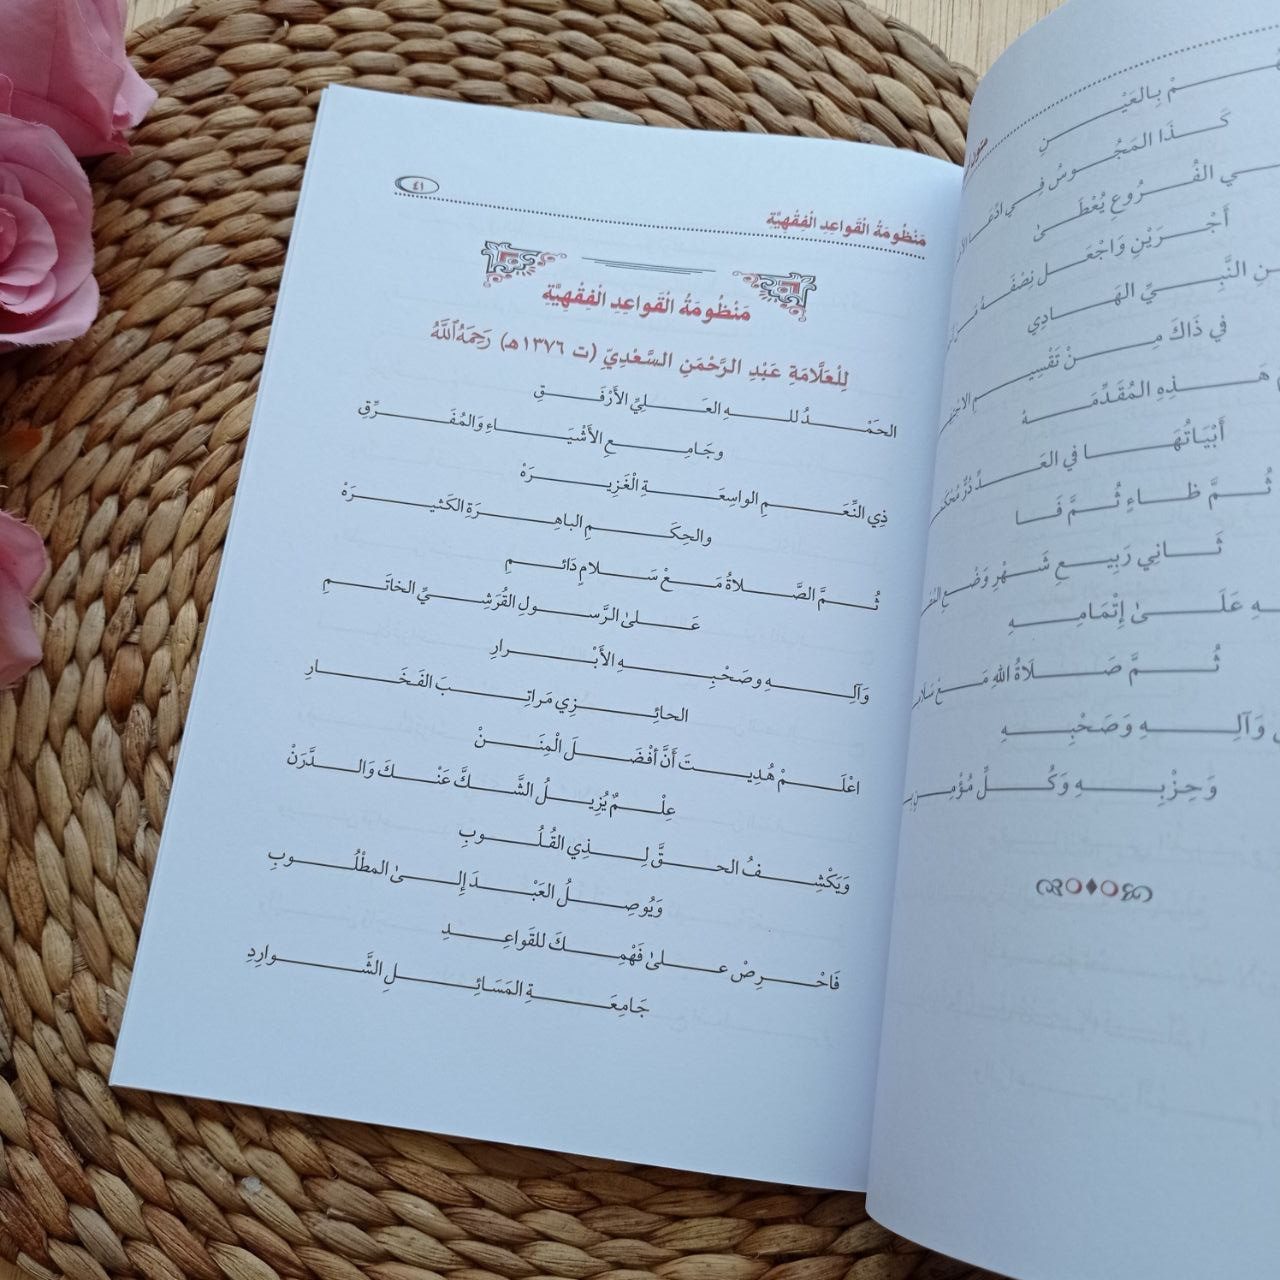 مَنْظُومَةُ الْقَوَاعِدِ الْفِقْهِيَّةِ
٤١
مَنْظُومَةُ الْقَوَاعِدِ الْفِقْهِيَّةِ
لِلْعَلَّامَةِ عَبْدِ الرَّحْمَنِ السَّعْدِيِّ (ت ١٣٧٦هـ) رَحِمَهُ اللَّهُ
الحَمْدُ للهِ العَلِيِّ الأَرْفَقِ
وجَامِعِ الأَشْيَاءِ وَالمُفَرِّقِ
ذِي النِّعَمِ الواسِعَةِ الْغَزِيرَهْ
والحِكَمِ الباهِرَةِ الكَثيرَهْ
ثُمَّ الصَّلاةُ مَعْ سَلامٍ دَائمِ
عَلىٰ الرَّسولِ القُرَشِيِّ الخاتَمِ
وَآلِهِ وصَحْبِهِ الأَبْرارِ
الحائِزِي مَراتِبَ الفَخَارِ
اعْلَمْ هُدِيتَ أَنَّ أفْضَلَ الْمِنَنْ
عِلْمٌ يُزِيلُ الشَّكَّ عَنْكَ وَالدَّرَنْ
وَيَكْشِفُ الحقَّ لِذِي القُلُوبِ
وَيُوصِلُ العَبْدَ إِلىٰ المطْلُوبِ
فَاحْرِصْ علىٰ فَهْمِكَ للقَواعِدِ
جَامِعَةِ المَسَائِلِ الشَّوارِدِ
مْ بِالعَيْنِ
كَذَا المَجُوسُ فِي
الفُرُوعِ يُعْطَىٰ
أَجْرَيْنِ وَاجْعَل نِصْفَهُ
النَّبِيِّ الهَادِي
في ذَاكَ مِنْ تَقْسِيمِ
هَذِهِ المُقَدِّمَهْ
أَبْيَاتُهَا في العَدِّ
ثُمَّ ظَاءٍ ثُمَّ فَا
ثَانِي رَبِيعِ شَهْرِ وَضْعِ
عَلَىٰ إِتْمَامِهِ
ثُمَّ صَلَاةُ اللهِ مَعْ
وَآلِهِ وَصَحْبِهِ
وَحِزْبِهِ وَكُلِّ مُؤْمِنٍ